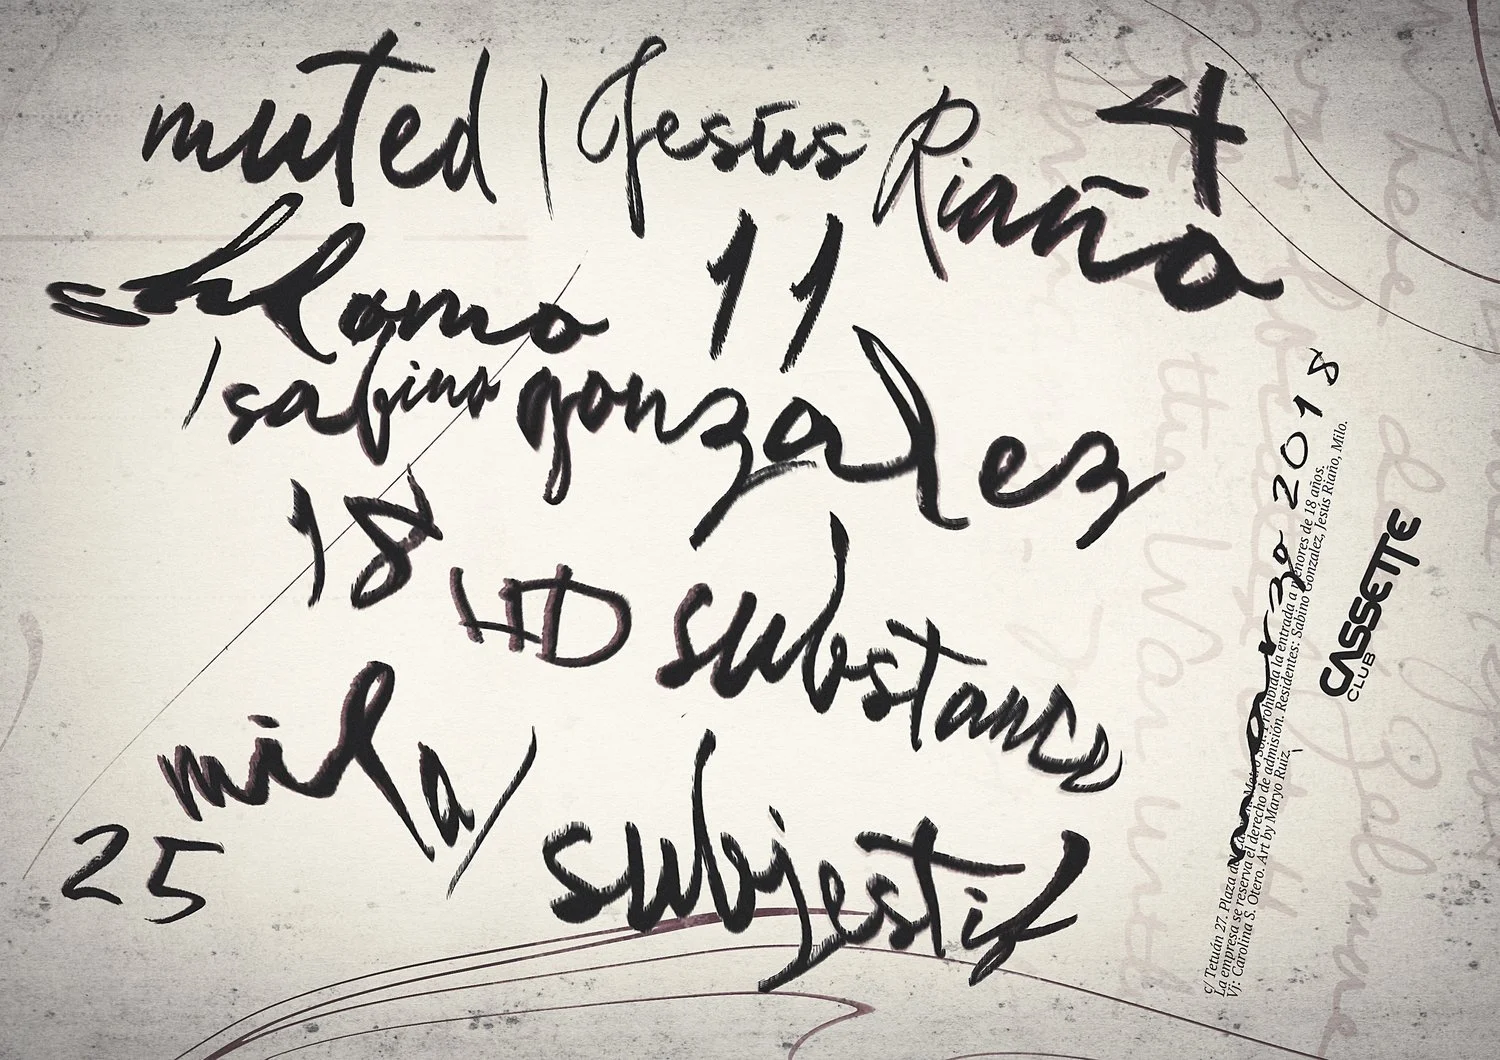 muted | Jesús Riaño 4
shlomo 11
/ sabino gonzalez
18 HD substance
mila / subjestif
25
marzo 2018
c/ Tetuán 27. Plaza del Metro Sol. Prohibida la entrada a menores de 18 años.
La empresa se reserva el derecho de admisión. Residentes: Sabino Gonzalez, Jesús Riaño, Milo.
Vj: Carolina S. Otero. Art by Maryo Ruiz.
CASSETTE
CLUB